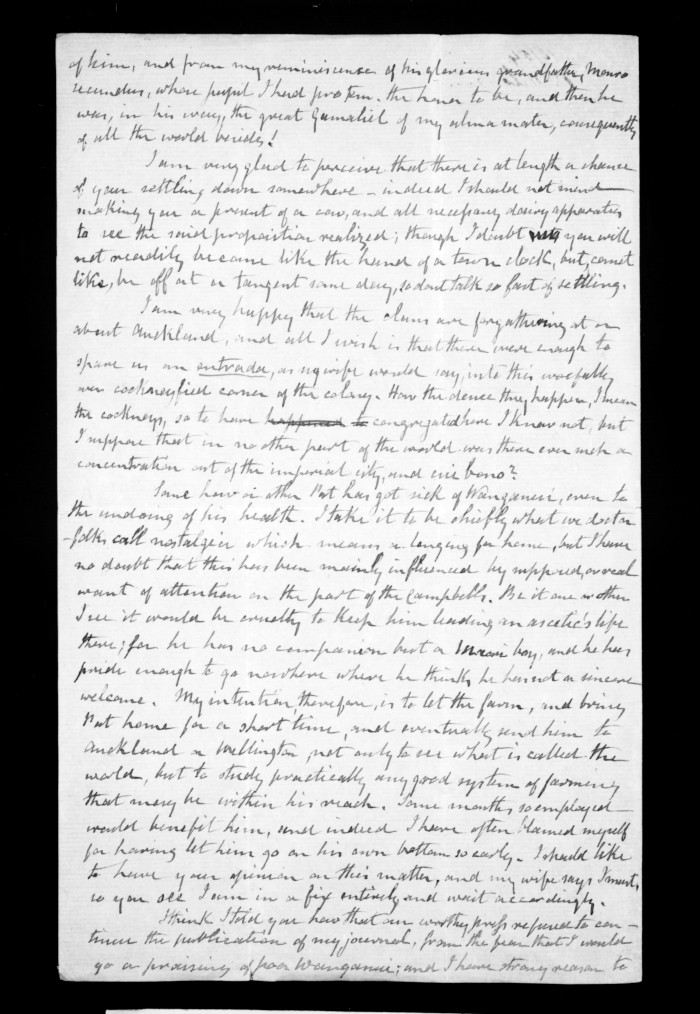 of him, and from my reminiscence of his glorious grandfather, Monro
secundus, whose pupil I had pro tem. the honor to be, and then he
was, in his way, the great Gamaliel of my alma mater, consequently
of all the world beside!
I am very glad to perceive that there is at length a chance
of your settling down somewhere – indeed I should not mind
making you a present of a cow, and all necessary dairy apparatus
to see the said proposition realized; though I doubt you will
not readily become like the hand of a town clock, but, comet
like, be off at a tangent some day, so dont talk so fast of settling.
I am very happy that the clans are forgathering at or
about Auckland, and all I wish is that there were enough to
spare us an entrada, as my wife would say, into this woefully
over cockneyfied corner of the colony. How the deuce they happen, I mean
the cockneys, so to have happened to congregated here I know not, but
I suppose that in no other part of the world was there ever such a
concentration out of the imperial city, and cui bono?
Some how or other Pat has got sick of Wanganui, even to
the undoing of his health. I take it to be chiefly what we doctor
folks call nostalgia which means a longing for home, but I have
no doubt that this has been mainly influenced by supposed, or real
want of attention on the part of the Campbells. Be it one or other
I see it would be cruelty to keep him leading an ascetic's life
there; for he has no companion but a maori boy, and he has
pride enough to go nowhere where he thinks he has not a sincere
welcome. My intention, therefore, is to let the farm, and bring
Pat home for a short time, and eventually send him to
Auckland or Wellington, not only to see what is called the
world, but to study practically any good system of farming
that may be within his reach. Some months so employed
would benefit him, and indeed I have often blamed myself
for having let him go on his own bottom so early. I should like
to have your opinion on this matter, and my wife says I must,
so you see I am in a fix entirely and wait accordingly.
I think I told you how that our worthy press refused to con-
tinue the publication of my journal, from the fear that I would
go a praising of poor Wanganui; and I have strong reason to